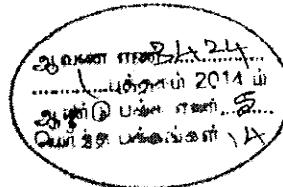 ஆவண எண் 8424
1 புத்தகம் 2014 ம்
ஆண்டு பக்க எண் 5
மொத்த பக்கங்கள் 14